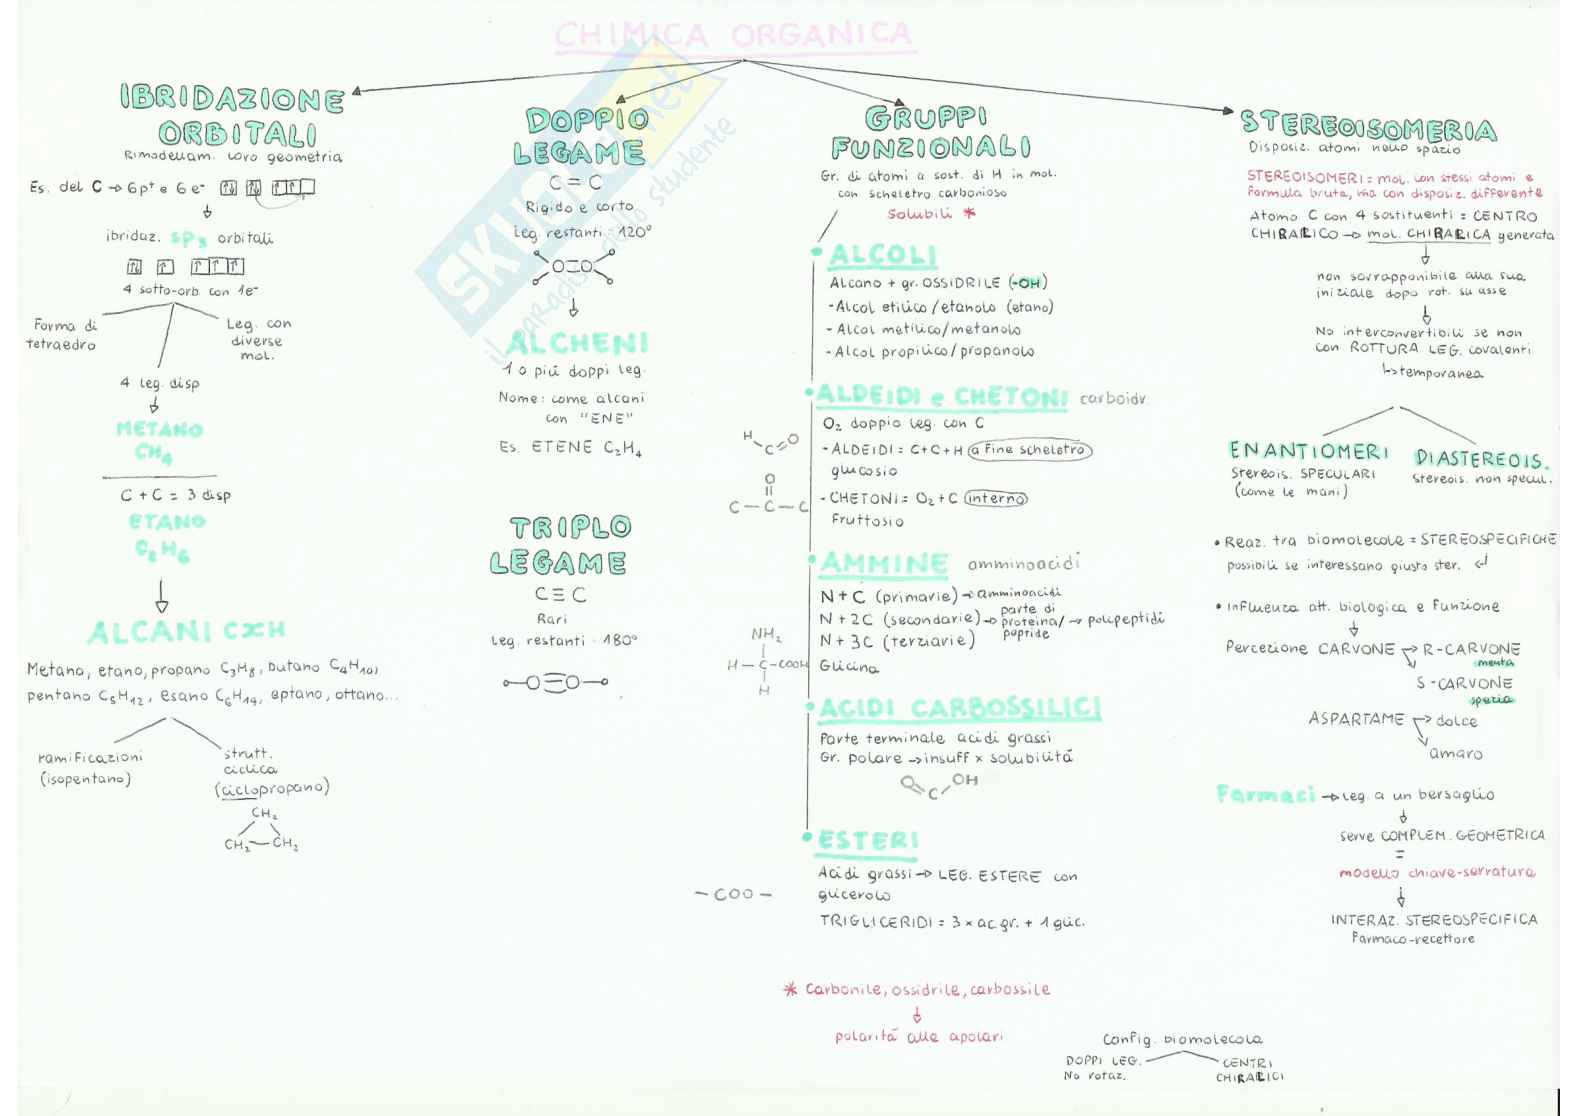 CHIMICA ORGANICA
IBRIDAZIONE
ORBITALI
Rimodellam. loro geometria
Es. del C → 6p⁺ e 6e⁻
ibridaz. sp₃ orbitali
4 sotto-orb. con 1e⁻
Forma di
tetraedro
Leg. con
diverse
mol.
4 leg. disp
METANO
CH₄
C + C = 3 disp
ETANO
C₂H₆
ALCANI CxH
Metano, etano, propano C₃H₈, butano C₄H₁₀,
pentano C₅H₁₂, esano C₆H₁₄, eptano, ottano...
ramificazioni
(isopentano)
strutt.
ciclica
(ciclopropano)
CH₂
CH₂—CH₂
DOPPIO
LEGAME
C = C
Rigido e corto
Leg. restanti = 120°
ALCHENI
1 o più doppi leg.
Nome: come alcani
con "ENE"
Es. ETENE C₂H₄
TRIPLO
LEGAME
C ≡ C
Rari
Leg. restanti = 180°
SKUOLA.net
il paradiso dello studente
GRUPPI
FUNZIONALI
Gr. di atomi a sost. di H in mol.
con scheletro carbonioso
Solubili *
ALCOLI
Alcano + gr. OSSIDRILE (-OH)
-Alcol etilico/etanolo (etano)
- Alcol metilico/metanolo
- Alcol propilico/propanolo
ALDEIDI e CHETONI carboidr.
O₂ doppio leg. con C
- ALDEIDI = C+C+H a fine scheletro
glucosio
- CHETONI = O₂ + C interno
Fruttosio
H C O
O
C — C — C
AMMINE amminoacidi
N + C (primarie) → amminoacidi
N + 2C (secondarie) → parte di proteina/ → polipeptidi
N + 3C (terziarie) popride
Glicina
NH₂
H — C — COOH
H
ACIDI CARBOSSILICI
Parte terminale acidi grassi
Gr. polare → insuff x solubilità
O C OH
ESTERI
Acidi grassi → LEG. ESTERE con
glicerolo
TRIGLICERIDI = 3 x ac.gr. + 1 glic.
— COO —
* Carbonile, ossidrile, carbossile
polarità alle apolari
STEREOISOMERIA
Disposiz. atomi nello spazio
STEREOISOMERI = mol. con stessi atomi e
Formula bruta, ma con disposiz. differente
Atomo C con 4 sostituenti = CENTRO
CHIRALICO → mol. CHIRALICA generata
non sovrapponibile alla sua
iniziale dopo rot. su asse
No interconvertibili se non
con ROTTURA LEG. covalenti
↳ temporanea
ENANTIOMERI
Stereois. SPECULARI
(come le mani)
DIASTEREOIS.
Stereois. non specul.
• Reaz. tra biomolecole = STEREOSPECIFICHE
possibili se interessano giusto ster. ↵
• Influenza att. biologica e Funzione
Percezione CARVONE → R-CARVONE
menta
S-CARVONE
spezia
ASPARTAME → dolce
amaro
Farmaci → leg. a un bersaglio
serve COMPLEM. GEOMETRICA
=
modello chiave-serratura
INTERAZ. STEREOSPECIFICA
Farmaco-recettore
Config. biomolecola
DOPPI LEG.
No rotaz.
CENTRI
CHIRALICI